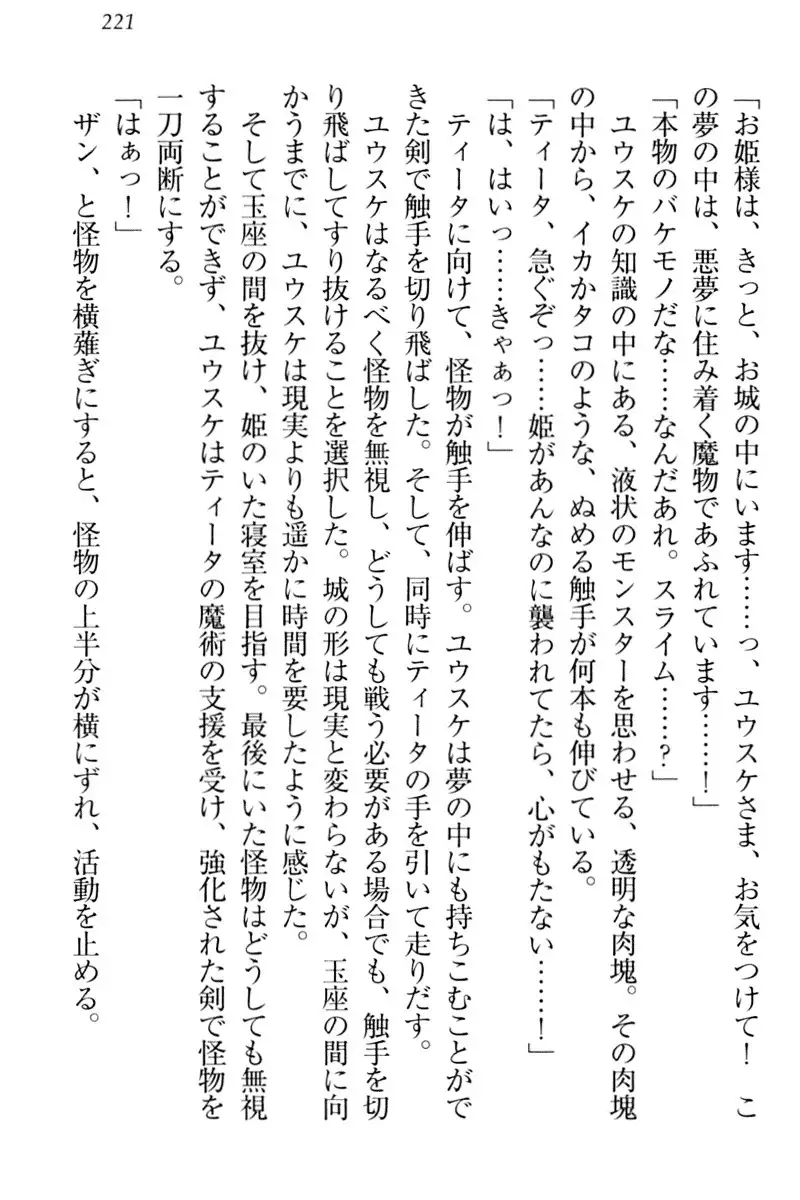 221
「お姫様は、きっと、お城の中にいます……っ、ユウスケさま、お気をつけて！　こ
の夢の中は、悪夢に住み着く魔物であふれています……！」
「本物のバケモノだな……なんだあれ。スライム……？」
　ユウスケの知識の中にある、液状のモンスターを思わせる、透明な肉塊。その肉塊
の中から、イカかタコのような、ぬめる触手が何本も伸びている。
「ティータ、急ぐぞっ……姫があんなのに襲われてたら、心がもたない……！」
「は、はいっ……きゃぁっ！」
　ティータに向けて、怪物が触手を伸ばす。ユウスケは夢の中にも持ちこむことがで
きた剣で触手を切り飛ばした。そして、同時にティータの手を引いて走りだす。
　ユウスケはなるべく怪物を無視し、どうしても戦う必要がある場合でも、触手を切
り飛ばしてすり抜けることを選択した。城の形は現実と変わらないが、玉座の間に向
かうまでに、ユウスケは現実よりも遥かに時間を要したように感じた。
　そして玉座の間を抜け、姫のいた寝室を目指す。最後にいた怪物はどうしても無視
することができず、ユウスケはティータの魔術の支援を受け、強化された剣で怪物を
一刀両断にする。
「はぁっ！」
　ザン、と怪物を横薙ぎにすると、怪物の上半分が横にずれ、活動を止める。